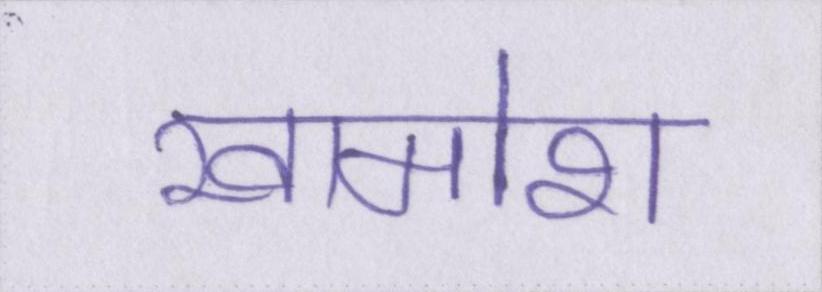 खामोश